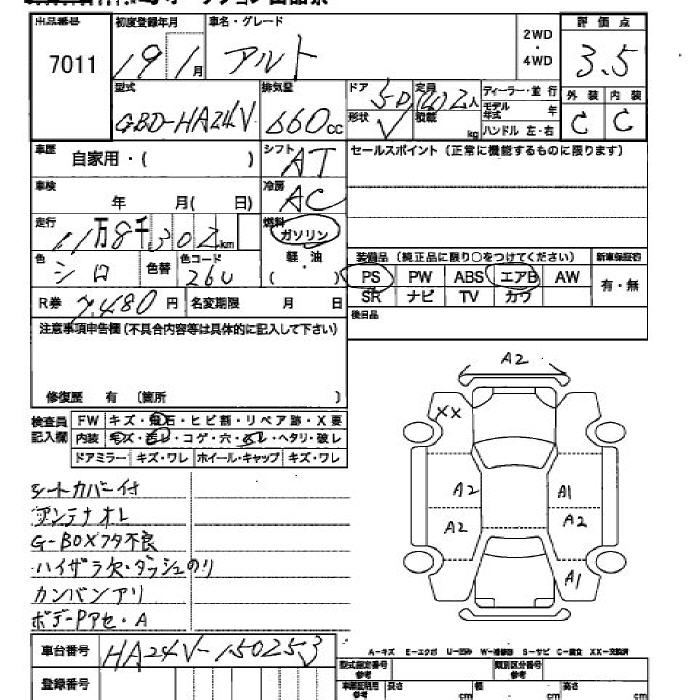 出品番号 初度登録年月 車名・グレード 2WD・4WD 評価点
7011 19年1月 アルト 3.5
型式 排気量 ドア 5D 定員 (2)2人 ディーラー・並行 外装 内装
GBD-HA24V 660cc 形状 V 積載 kg モデル年式 年 C C
ハンドル 左・右
車歴 自家用・( ) シフト AT セールスポイント(正常に機能するものに限ります)
車検 年 月( 日) 冷房 AC
走行 11万8千302km 燃料 ガソリン
軽・油
( )
色 シロ 色替 色コード 26U 装備品(純正品に限り○をつけてください) 新車保証書
PS PW ABS エアB AW 有・無
SR ナビ TV カワ
R券 7,480円 名変期限 月 日 後日品
注意事項申告欄(不具合内容等は具体的に記入して下さい)
修復歴 有(箇所 )
検査員記入欄 FW キズ・飛石・ヒビ割・リペア跡・X要
内装 キズ・ヨゴレ・コゲ・穴・スレ・ヘタリ・破レ
ドアミラー キズ・ワレ ホイール・キャップ キズ・ワレ
シートカバー付
アンテナオレ
G-BOXフタ不良
ハイザラ欠・ダッシュのリ
カンバンアリ
ボデーPアセ・A
A2
XX
A2 A1
A2 A2
A1
車台番号 HA24V-150253
登録番号
A-キズ E-エクボ U-凹み W-補修跡 S-サビ C-腐食 XX-交換済
型式指定番号 類別区分番号
車庫証明用参考 長さ cm 幅 cm 高さ cm